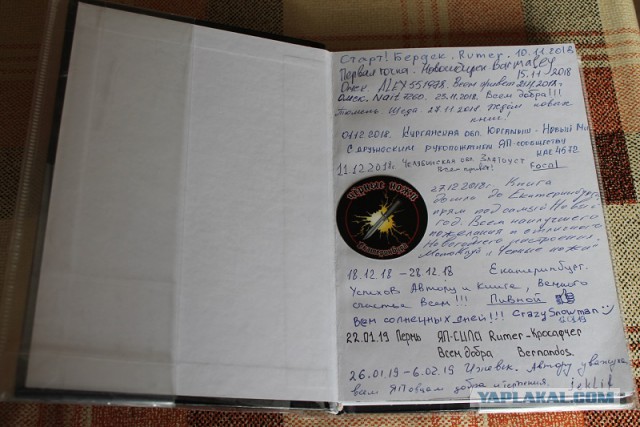 Старт! Бердск. Rumer. 10.11.2018
Первая точка. Новосибирск Barmaley
15.11 2018
Омск ALEX551998. Всем привет
Омск. Nait7200. 25.11.2018. Всем добра!!!
Тюмень. 27.11.2018 Ждём новых
книг!
04.12.2018. Курганская обл. Юргамыш - Новый Мир
С дружеским рукопожатием ЯП-сообществу
4572
11.12.2018г Челябинская обл. Златоуст
Всем привет! Focal
ЧЁРНЫЕ НОЖИ
Екатеринбург
27.12.2018г. Книга
дошла до Екатеринбурга
прям под самый Новый
год. Всем наилучшего
пожелания и отличного
Новогоднего настроения.
"Чёрные ножи"
18.12.18 - 28.12.18 Екатеринбург.
Успехов Автору и книге, вечного
счастья всем!!! Пивной
Всем солнечных дней!!! CrazySnowman
22.01.19 Пермь ЯП-СИЛА Rumer - Красафчег
Всем добра Bernandos.
26.01.19 - 6.02.19 Ижевск. Автору уважуха,
вам ЯПовцам добра и терпения.
YAPLAKAL.COM